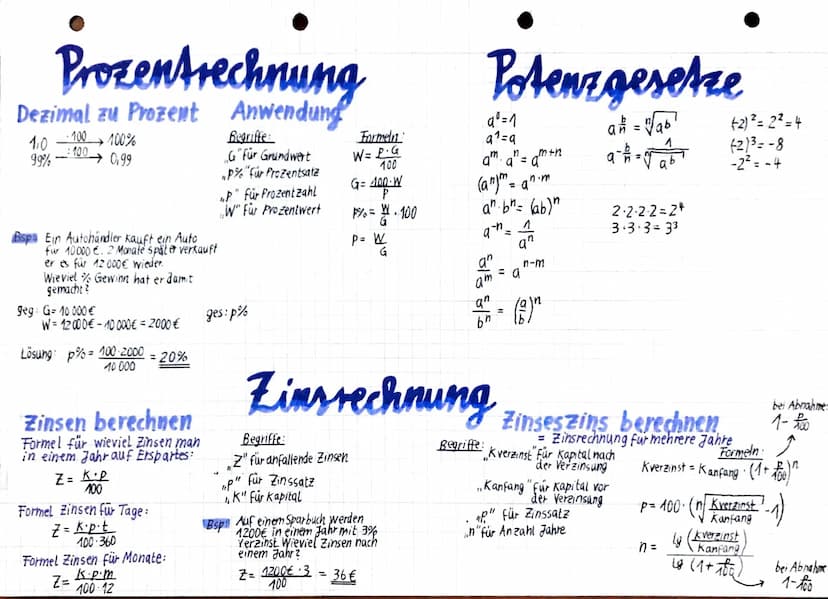 Prozentrechnung
Dezimal zu Prozent
1,0 —·100→ 100%
99% —:100→ 0,99
Anwendung
Begriffe:
„G" für Grundwert
„p%" für Prozentsatz
„p" für Prozentzahl
„W" für Prozentwert
Formeln:
W = p·G/100
G = 100·W/p
p% = W/G · 100
p = W/G
Bsp: Ein Autohändler kauft ein Auto
für 10000€. 2 Monate später verkauft
er es für 12000€ wieder.
Wieviel % Gewinn hat er damit
gemacht?
geg: G = 10 000€
W = 12000€ - 10 000€ = 2000€
ges: p%
Lösung: p% = 100·2000/10 000 = 20%
Potenzgesetze
a⁰=1
a¹=a
a^m · a^n = a^(m+n)
(a^n)^m = a^(n·m)
a^n · b^n = (ab)^n
a^(-n) = 1/a^n
a^n/a^m = a^(n-m)
a^n/b^n = (a/b)^n
a^(b/n) = ⁿ√(a^b)
a^(-b/n) = 1/ⁿ√(a^b)
2·2·2·2 = 2⁴
3·3·3 = 3³
(-2)² = 2² = 4
(-2)³ = -8
-2² = -4
Zinsrechnung
Zinsen berechnen
Formel für wieviel Zinsen man
in einem Jahr auf Erspartes:
Z = K·p/100
Formel Zinsen für Tage:
Z = K·p·t/100·360
Formel Zinsen für Monate:
Z = K·p·m/100·12
Begriffe:
„Z" für anfallende Zinsen
„p" für Zinssatz
„K" für Kapital
Bsp: Auf einem Sparbuch werden
1200€ in einem Jahr mit 3%
verzinst. Wieviel Zinsen nach
einem Jahr?
Z = 1200€·3/100 = 36€
Zinseszins berechnen
= Zinsrechnung für mehrere Jahre
Begriffe:
„Kverzinst" für Kapital nach
der Verzinsung
„Kanfang" für Kapital vor
der Verzinsung
„p" für Zinssatz
„n" für Anzahl Jahre
Formeln:
Kverzinst = Kanfang · (1 + p/100)^n
p = 100 · (ⁿ√(Kverzinst/Kanfang) - 1)
n = lg (Kverzinst/Kanfang) / lg (1 + p/100)
bei Abnahme:
1 - p/100
bei Abnahme
1 - p/100